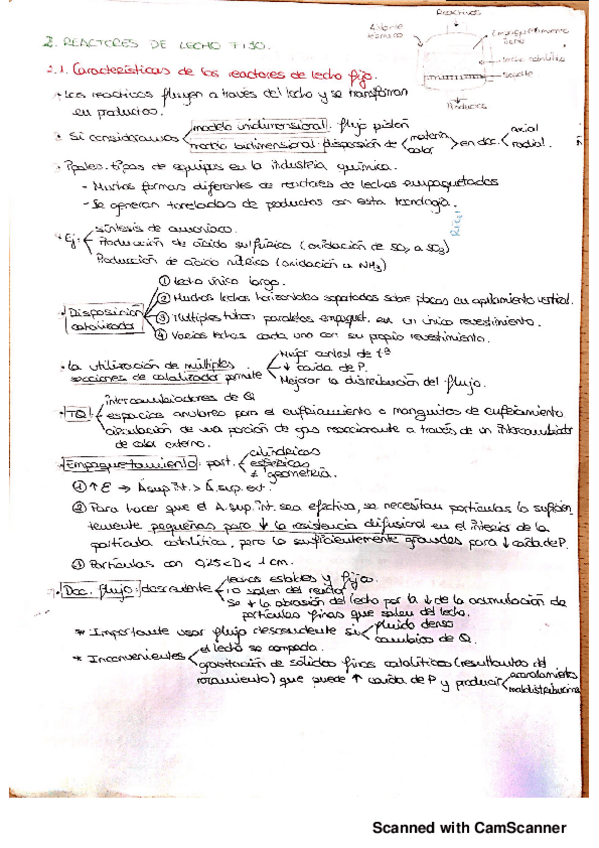 Reactivos
Aislante térmico
Empaquetamiento
lecho
Soporte
Productos
2. REACTORES DE LECHO FIJO.
2.1. Características de los reactores de lecho fijo.
• Los reactivos fluyen a través del lecho y se transforman
en productos.
• Si consideramos modelo unidimensional: flujo pistón
modelo bidimensional: dispersión de materia calor en dcc. axial radial.
• Ppales. tipos de equipos en la industria química.
- Muchas formas diferentes de reactores de lechos empaquetados
- Se generan toneladas de productos con esta tecnología.
• Ej: Síntesis de amoniaco.
Producción de ácido sulfúrico (oxidación de SO2 a SO3)
Producción de ácido nítrico (oxidación de NH3)
① Lecho único largo.
② Muchos lechos horizontales soportados sobre placas en apilamiento vertical.
• Disposición catalizador
③ Múltiples tubos paralelos empaquet. en un único revestimiento.
④ Varios lechos cada uno con su propio revestimiento.
• La utilización de múltiples secciones de catalizador permite
Mejor control de tª
↓ caída de P.
Mejorar la distribución del flujo.
• TQ
intercambiadores de Q
espacios anulares para el enfriamiento o manguitos de enfriamiento
circulación de una porción de gas reaccionante a través de un intercambiador
de calor externo.
• Empaquetamiento: part. cilíndricas
esféricas
≠ geometría.
① ↑ε → A sup. int. > A. sup. ext.
② Para hacer que el A. sup. int. sea efectiva, se necesitan partículas lo suficien
temente pequeñas para ↓ la resistencia difusional en el interior de la
partícula catalítica, pero lo suficientemente grandes para ↓ caída de P.
③ Partículas con 0,25<D< 1 cm.
• Dcc. flujo: descendente
lechos estables y fijos.
no salen del reactor
Se ↓ la abrasión del lecho por la ↓ de la acumulación de
partículas finas que salen del lecho.
* Importante usar flujo descendente si fluido denso
cambios de Q.
* Inconvenientes el lecho se compacta.
gravitación de sólidos finos catalíticos (resultantes del
rozamiento) que puede ↑ caída de P y producir acanalamientos
maldistribución
Scanned with CamScanner